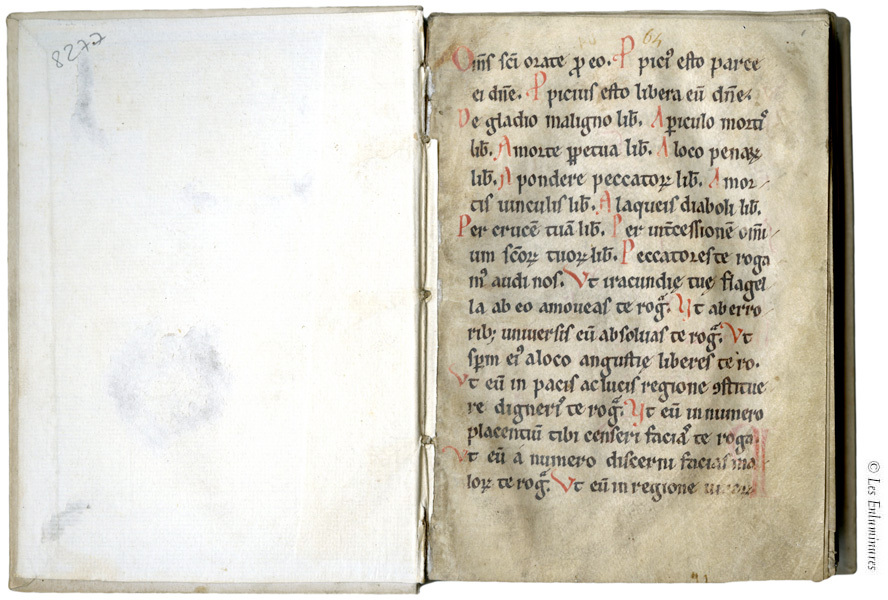 8277
64
Om̄s sc̄i orate ꝓ eo. Ppici⁹ esto parce
ei dn̄e. Ppicius esto libera eū dn̄e.
De gladio maligno lib̄. A ꝑiculo morti⁹
lib̄. A morte ꝑpetua lib̄. A loco penaꝝ
lib̄. A pondere peccatoꝝ lib̄. A mor
tis uinculis lib̄. A laqueis diaboli lib̄.
Per crucē tuā lib̄. Per int̄cessionē om̄i
um sc̄oꝝ tuoꝝ lib̄. Peccatores te roga
m⁹ audi nos. Vt iracundie tue flagel
la ab eo amoueas te roḡ. Vt ab erro
rib; uniuersis eū absoluas te roḡ. Vt
sp̄m ei⁹ a loco angustie liberes te ro.
Vt eū in pacis ac lucis regione ꝯstitue
re digneri⁹ te roḡ. Vt eū in numero
placentiū tibi censeri facia⁹ te roga.
Vt eū a numero discerni facias ma
loꝝ te roḡ. Vt eū in regione uiuoꝝ
© Les Enluminures